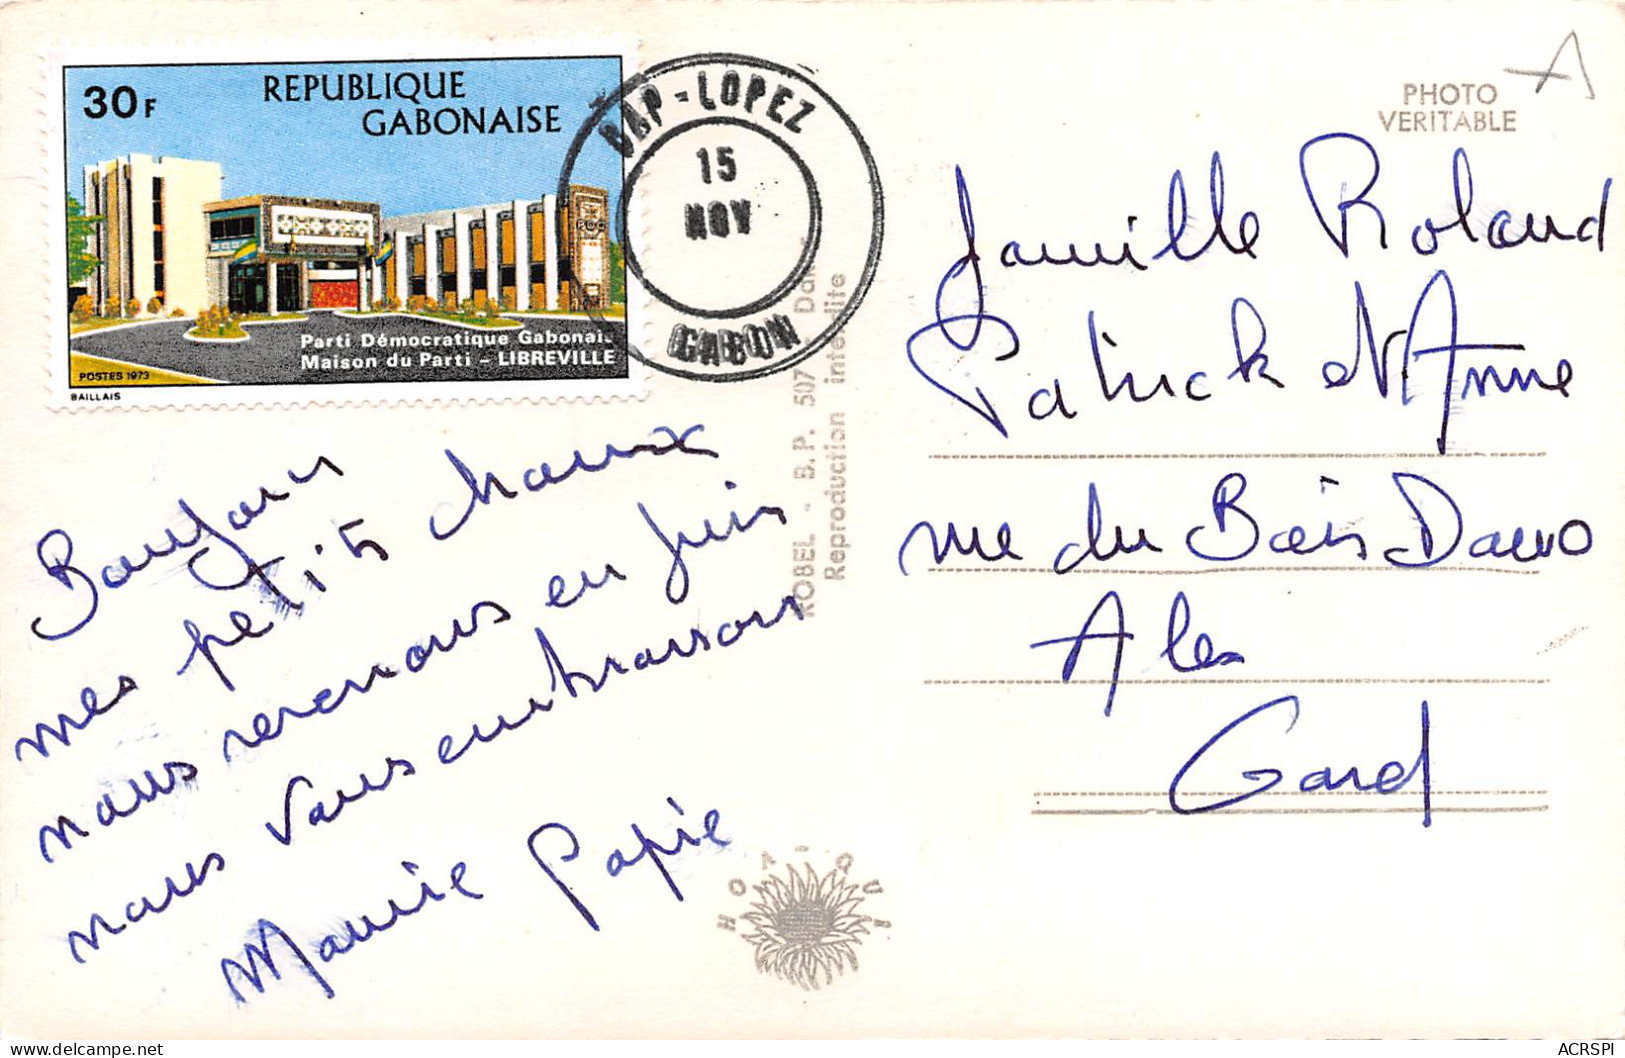 30F
REPUBLIQUE
GABONAISE
Parti Démocratique Gabonais
Maison du Parti - LIBREVILLE
POSTES 1973
BAILLAIS
CAP-LOPEZ
15
NOV
GABON
PHOTO
VERITABLE
A
Bonjour
mes petits choux
nous revenons en juin
nous vous embrassons
Mamie Papie
HOBEL - B.P. 507
Reproduction interdite
HOTIQUI
Famille Roland
Patrick et Anne
rue du Bois
Ales
Gard
ACRSPI